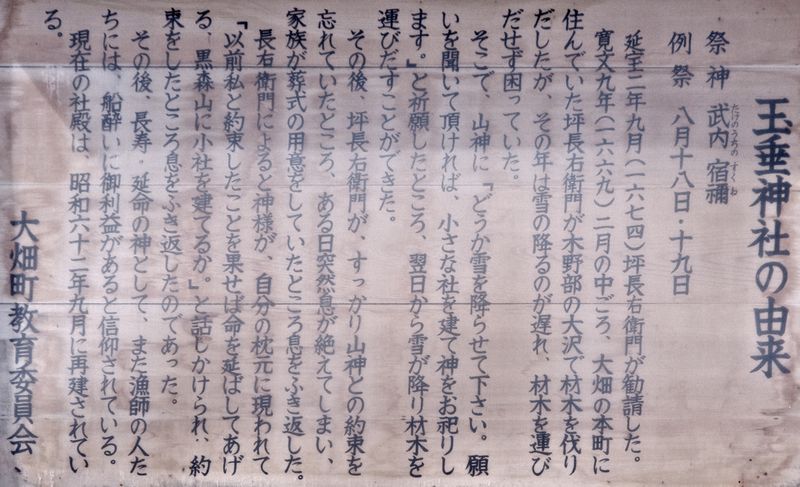 玉垂神社の由来
祭神 武内宿禰
たけのうちの すくね
例祭 八月十八日・十九日
延宝二年九月(一六七四)坪長右衛門が勧請した。
寛文九年(一六六九)二月の中ごろ、大畑の本町に
住んでいた坪長右衛門が木野部の大沢で材木を伐り
だしたが、その年は雪の降るのが遅れ、材木を運び
だせず困っていた。
そこで、山神に「どうか雪を降らせて下さい。願
いを聞いて頂ければ、小さな社を建て神をお祀りし
ます。」と祈願したところ、翌日から雪が降り材木を
運びだすことができた。
その後、坪長右衛門が、すっかり山神との約束を
忘れていたところ、ある日突然息が絶えてしまい、
家族が葬式の用意をしていたところ息をふき返した。
長右衛門によると神様が、自分の枕元に現われて
「以前私と約束したことを果せば命を延ばしてあげ
る、黒森山に小社を建てるか。」と話しかけられ、約
束をしたところ息をふき返したのであった。
その後、長寿・延命の神として、また漁師の人た
ちには、船酔いに御利益があると信仰されている。
現在の社殿は、昭和六十二年九月に再建されてい
る。
大畑町教育委員会